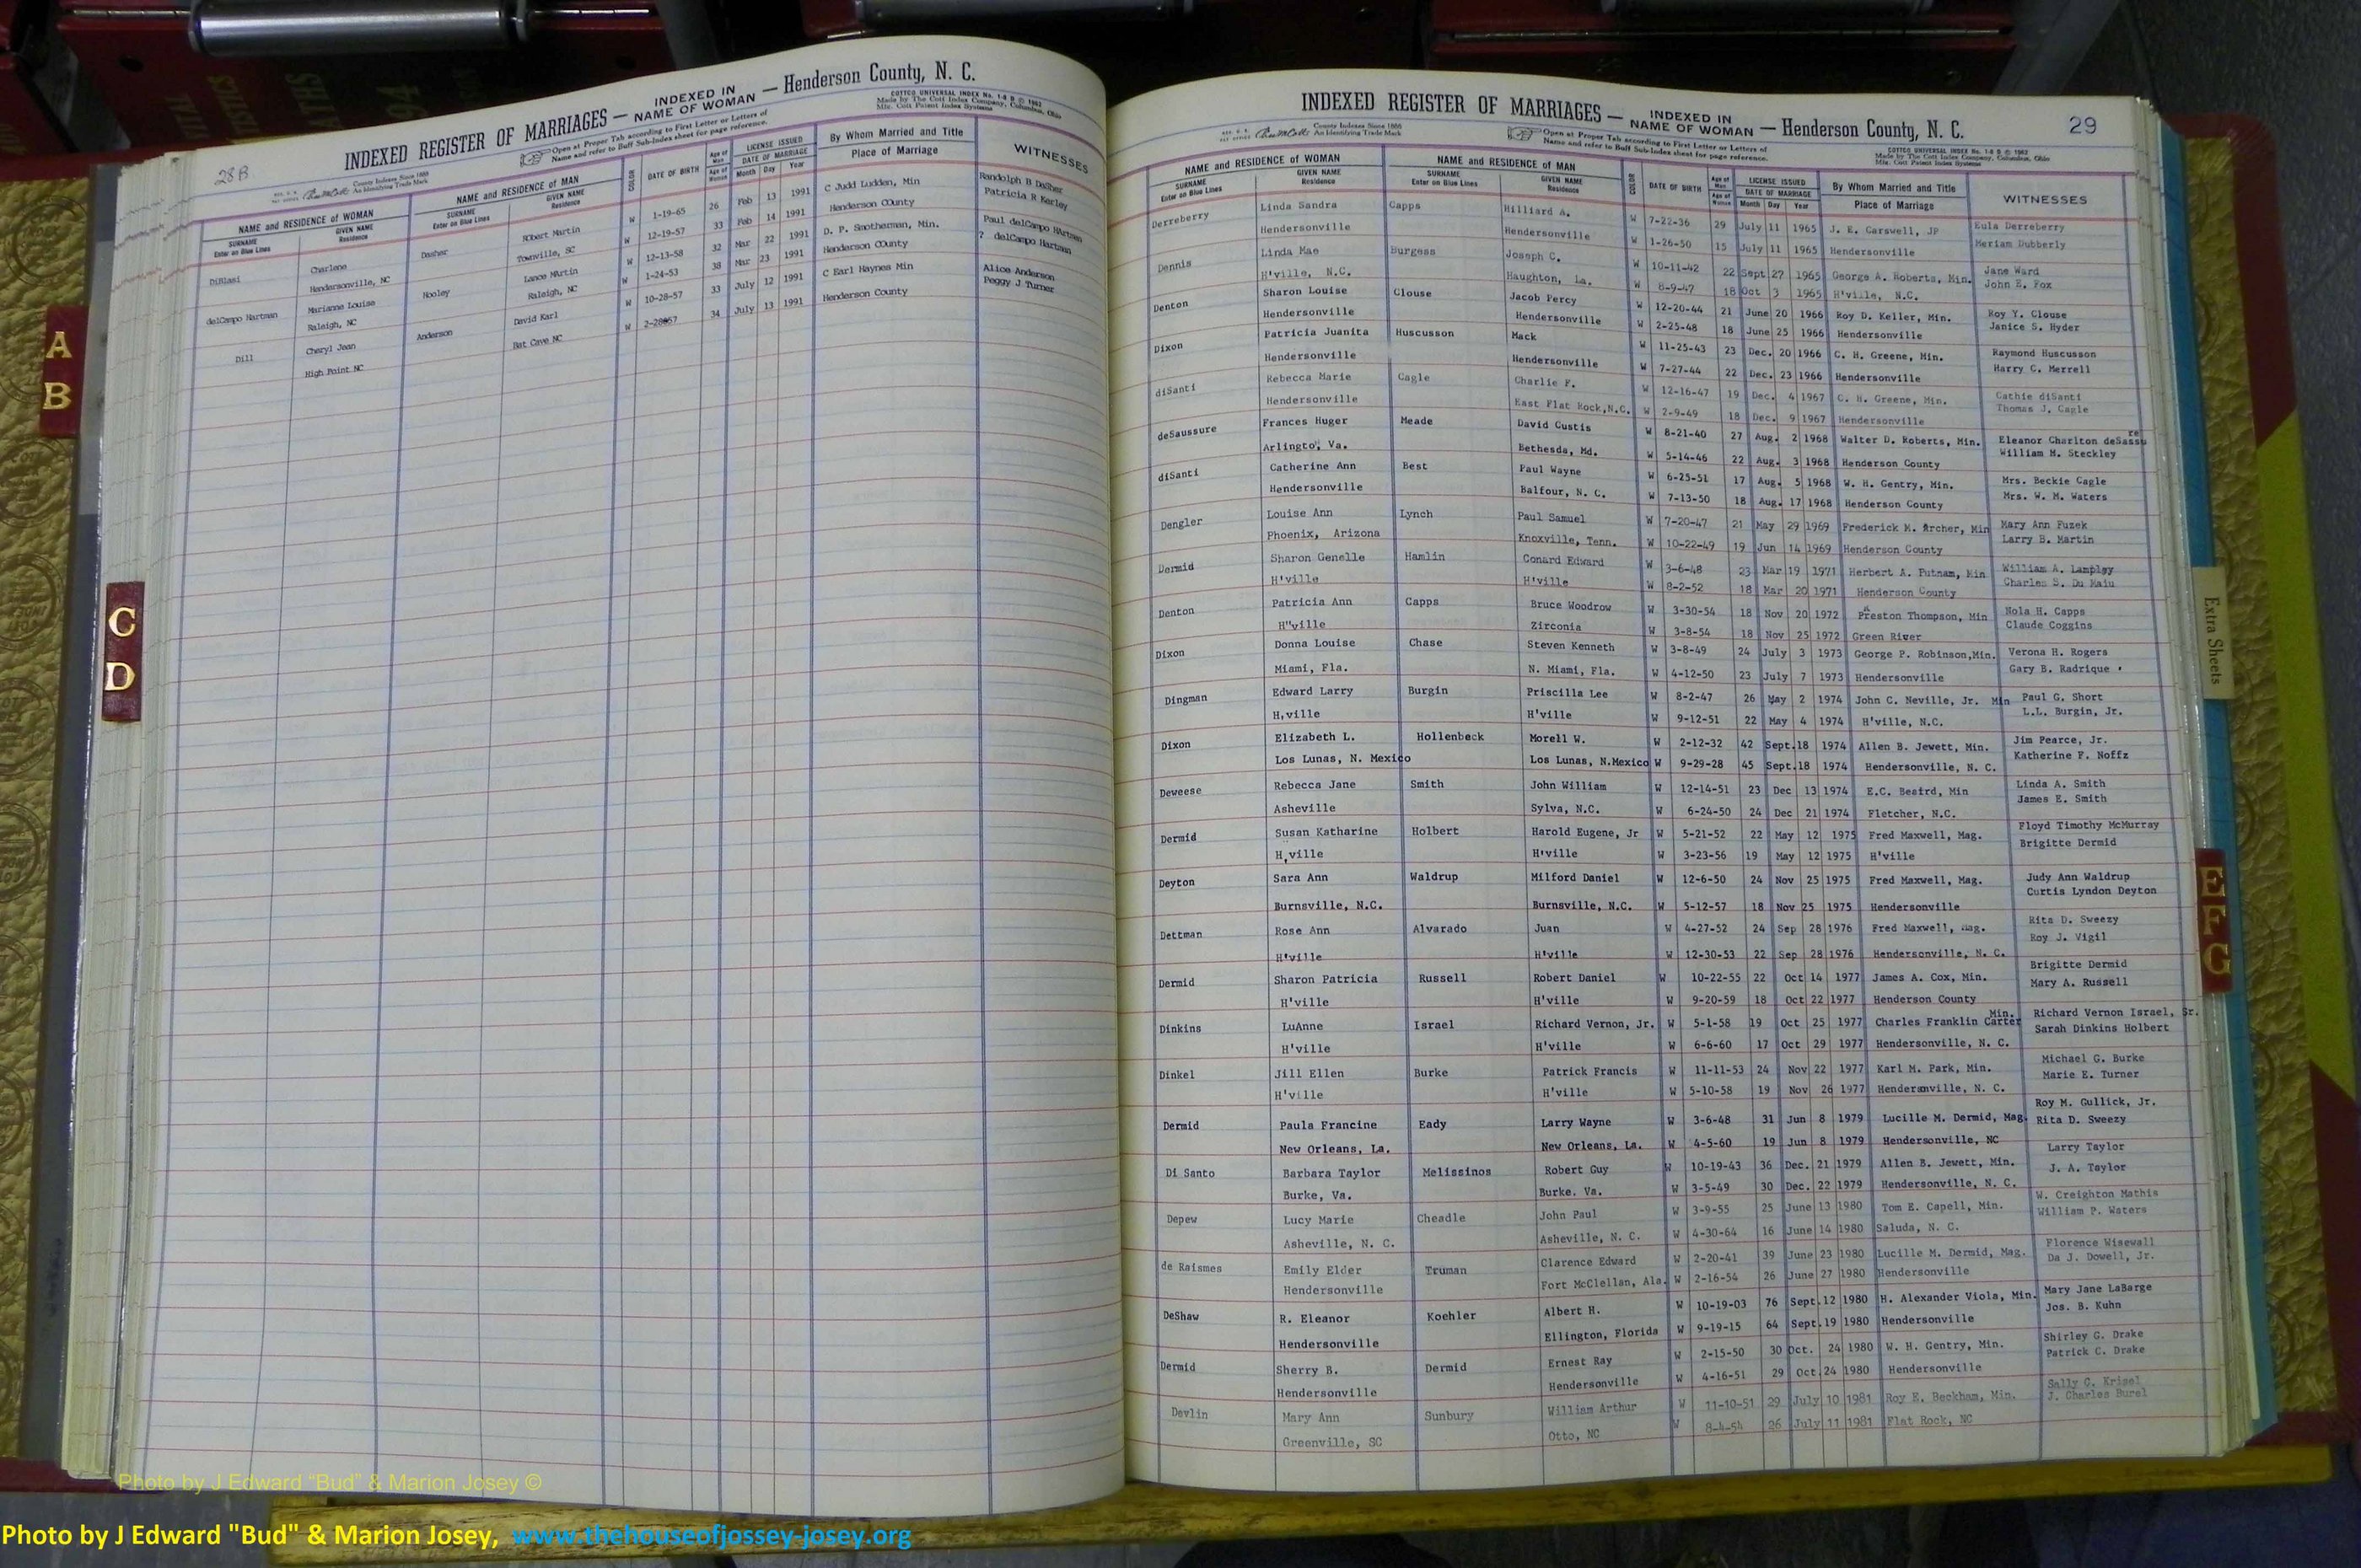 28B
INDEXED REGISTER OF MARRIAGES — INDEXED IN NAME OF WOMAN — Henderson County, N. C.
County Indexes Since 1888
An Identifying Trade Mark
Open at Proper Tab according to First Letter or Letters of
Name and refer to Buff Sub-Index sheet for page reference.
COTTCO UNIVERSAL INDEX No. 1-8 D © 1962
Made by The Cott Index Company, Columbus, Ohio
Mfg. Cott Patent Index Systems
NAME and RESIDENCE of WOMAN NAME and RESIDENCE of MAN COLOR DATE OF BIRTH Age of Man LICENSE ISSUED By Whom Married and Title WITNESSES
SURNAME GIVEN NAME SURNAME GIVEN NAME Age of Woman DATE OF MARRIAGE Place of Marriage
Enter on Blue Lines Residence Enter on Blue Lines Residence Month Day Year
DiBlasi Charlene Dasher Robert Martin W 1-19-65 26 Feb 13 1991 C Judd Ludden, Min Randolph B DaSher
Hendersonville, NC Townville, SC W 12-19-57 33 Feb 14 1991 Henderson COunty Patricia R Kerley
delCampo Hartman Marianna Louise Hooley Lance MArtin W 12-13-58 32 Mar 22 1991 D. P. Smotherman, Min. Paul delCampo HArtman
Raleigh, NC Raleigh, NC W 1-24-53 38 Mar 23 1991 Henderson COunty ? delCampo Hartman
Dill Cheryl Jean Anderson David Karl W 10-28-57 33 July 12 1991 C Earl Haynes Min Alice Anderson
High Point NC Bat Cave NC W 34 July 13 1991 Henderson County Peggy J Turner
A
B
C
D
INDEXED REGISTER OF MARRIAGES — INDEXED IN NAME OF WOMAN — Henderson County, N. C. 29
County Indexes Since 1888
An Identifying Trade Mark
Open at Proper Tab according to First Letter or Letters of
Name and refer to Buff Sub-Index sheet for page reference.
COTTCO UNIVERSAL INDEX No. 1-8 D © 1962
Made by The Cott Index Company, Columbus, Ohio
Mfg. Cott Patent Index Systems
NAME and RESIDENCE OF WOMAN NAME and RESIDENCE OF MAN COLOR DATE OF BIRTH Age of Man LICENSE ISSUED By Whom Married and Title WITNESSES
SURNAME GIVEN NAME SURNAME GIVEN NAME Age of Woman DATE OF MARRIAGE Place of Marriage
Enter on Blue Lines Residence Enter on Blue Lines Residence Month Day Year
Derreberry Linda Sandra Capps Hilliard A. W 7-22-36 29 July 11 1965 J. E. Carswell, JP Eula Derreberry
Hendersonville Hendersonville W 1-26-50 15 July 11 1965 Hendersonville Meriam Dubberly
Dennis Linda Mae Burgess Joseph C. W 10-11-42 22 Sept 27 1965 George A. Roberts, Min. Jane Ward
H'ville, N.C. Haughton, La. W 8-9-47 18 Oct 3 1965 H'ville, N.C. John E. Fox
Denton Sharon Louise Clouse Jacob Percy W 12-20-44 21 June 20 1966 Roy D. Keller, Min. Roy Y. Clouse
Hendersonville Hendersonville W 2-25-48 18 June 25 1966 Hendersonville Janice S. Hyder
Dixon Patricia Juanita Huscusson Mack W 11-25-43 23 Dec. 20 1966 C. H. Greene, Min. Raymond Huscusson
Hendersonville Hendersonville W 7-27-44 22 Dec. 23 1966 Hendersonville Harry C. Merrell
diSanti Rebecca Marie Cagle Charlie F. W 12-16-47 19 Dec. 4 1967 C. H. Greene, Min. Cathie diSanti
Hendersonville East Flat Rock,N.C. W 2-9-49 18 Dec. 9 1967 Hendersonville Thomas J. Cagle
deSaussure Frances Huger Meade David Custis W 8-21-40 27 Aug. 2 1968 Walter D. Roberts, Min. Eleanor Charlton deSassure
Arlingto, Va. Bethesda, Md. W 5-14-46 22 Aug. 3 1968 Henderson County William M. Steckley
diSanti Catherine Ann Best Paul Wayne W 6-25-51 17 Aug. 5 1968 W. H. Gentry, Min. Mrs. Beckie Cagle
Hendersonville Balfour, N. C. W 7-13-50 18 Aug. 17 1968 Henderson County Mrs. W. M. Waters
Dengler Louise Ann Lynch Paul Samuel W 7-20-47 21 May 29 1969 Frederick M. Archer, Min Mary Ann Fuzek
Phoenix, Arizona Knoxville, Tenn. W 10-22-49 19 Jun 14 1969 Henderson County Larry B. Martin
Dermid Sharon Genelle Hamlin Conard Edward W 3-6-48 23 Mar 19 1971 Herbert A. Putnam, Min William A.
H'ville H'ville W 8-2-52 18 Mar 20 1971 Henderson County Charles S. Du Maiu
Denton Patricia Ann Capps Bruce Woodrow W 3-30-54 18 Nov 20 1972 Preston Thompson, Min Nola H. Capps
H"ville Zirconia W 3-8-54 18 Nov 25 1972 Green River Claude Coggins
Dixon Donna Louise Chase Steven Kenneth W 3-8-49 24 July 3 1973 George P. Robinson,Min. Verona H. Rogers
Miami, Fla. N. Miami, Fla. W 4-12-50 23 July 7 1973 Hendersonville Gary B. Radrique
Dingman Edward Larry Burgin Priscilla Lee W 8-2-47 26 May 2 1974 John C. Neville, Jr. Min Paul G. Short
H,ville H'ville W 9-12-51 22 May 4 1974 H'ville, N.C. L.L. Burgin, Jr.
Dixon Elizabeth L. Hollenbeck Morell W. W 2-12-32 42 Sept.18 1974 Allen B. Jewett, Min. Jim Pearce, Jr.
Los Lunas, N. Mexico Los Lunas, N.Mexico W 9-29-28 45 Sept.18 1974 Hendersonville, N. C. Katherine F. Noffz
Deweese Rebecca Jane Smith John William W 12-14-51 23 Dec 13 1974 E.C. Beaird, Min Linda A. Smith
Asheville Sylva, N.C. W 6-24-50 24 Dec 21 1974 Fletcher, N.C. James E. Smith
Dermid Susan Katharine Holbert Harold Eugene, Jr W 5-21-52 22 May 12 1975 Fred Maxwell, Mag. Floyd Timothy McMurray
H,ville H'ville W 3-23-56 19 May 12 1975 H'ville Brigitte Dermid
Deyton Sara Ann Waldrup Milford Daniel W 12-6-50 24 Nov 25 1975 Fred Maxwell, Mag. Judy Ann Waldrup
Burnsville, N.C. Burnsville, N.C. W 5-12-57 18 Nov 25 1975 Hendersonville Curtis Lyndon Deyton
Dettman Rose Ann Alvarado Juan W 4-27-52 24 Sep 28 1976 Fred Maxwell, Mag. Rita D. Sweezy
H'ville H'ville W 12-30-53 22 Sep 28 1976 Hendersonville, N. C. Roy J. Vigil
Dermid Sharon Patricia Russell Robert Daniel W 10-22-55 22 Oct 14 1977 James A. Cox, Min. Brigitte Dermid
H'ville H'ville W 9-20-59 18 Oct 22 1977 Henderson County Mary A. Russell
Dinkins LuAnne Israel Richard Vernon, Jr. W 5-1-58 19 Oct 25 1977 Charles Franklin Carter Min. Richard Vernon Israel, Sr.
H'ville H'ville W 6-6-60 17 Oct 29 1977 Hendersonville, N. C. Sarah Dinkins Holbert
Dinkel Jill Ellen Burke Patrick Francis W 11-11-53 24 Nov 22 1977 Karl M. Park, Min. Michael G. Burke
H'ville H'ville W 5-10-58 19 Nov 26 1977 Hendersonville, N. C. Marie E. Turner
Dermid Paula Francine Eady Larry Wayne W 3-6-48 31 Jun 8 1979 Lucille M. Dermid, Mag. Roy M. Gullick, Jr.
New Orleans, La. New Orleans, La. W 4-5-60 19 Jun 8 1979 Hendersonville, NC Rita D. Sweezy
Di Santo Barbara Taylor Melissinos Robert Guy W 10-19-43 36 Dec. 21 1979 Allen B. Jewett, Min. Larry Taylor
Burke, Va. Burke. Va. W 3-5-49 30 Dec. 22 1979 Hendersonville, N. C. J. A. Taylor
Depew Lucy Marie Cheadle John Paul W 3-9-55 25 June 13 1980 Tom E. Capell, Min. W. Creighton Mathis
Asheville, N. C. Asheville, N. C. W 4-30-64 16 June 14 1980 Saluda, N. C. William P. Waters
de Raismes Emily Elder Truman Clarence Edward W 2-20-41 39 June 23 1980 Lucille M. Dermid, Mag. Florence Wisewall
Hendersonville Fort McClellan, Ala. W 2-16-54 26 June 27 1980 Hendersonville Da J. Dowell, Jr.
DeShaw R. Eleanor Koehler Albert H. W 10-19-03 76 Sept.12 1980 H. Alexander Viola, Min. Mary Jane LaBarge
Hendersonville Ellington, Florida W 9-19-15 64 Sept.19 1980 Hendersonville Jos. B. Kuhn
Dermid Sherry B. Dermid Ernest Ray W 2-15-50 30 Oct. 24 1980 W. H. Gentry, Min. Shirley G. Drake
Hendersonville Hendersonville W 4-16-51 29 Oct.24 1980 Hendersonville Patrick C. Drake
Devlin Mary Ann Sunbury William Arthur W 11-10-51 29 July 10 1981 Roy E. Beckham, Min. Sally C. Krisel
Greenville, SC Otto, NC W 8-4-54 26 July 11 1981 Flat Rock, NC J. Charles Burel
Extra Sheets
E
F
G
Photo by J Edward “Bud” & Marion Josey ©
Photo by J Edward "Bud" & Marion Josey, www.thehouseofjossey-josey.org